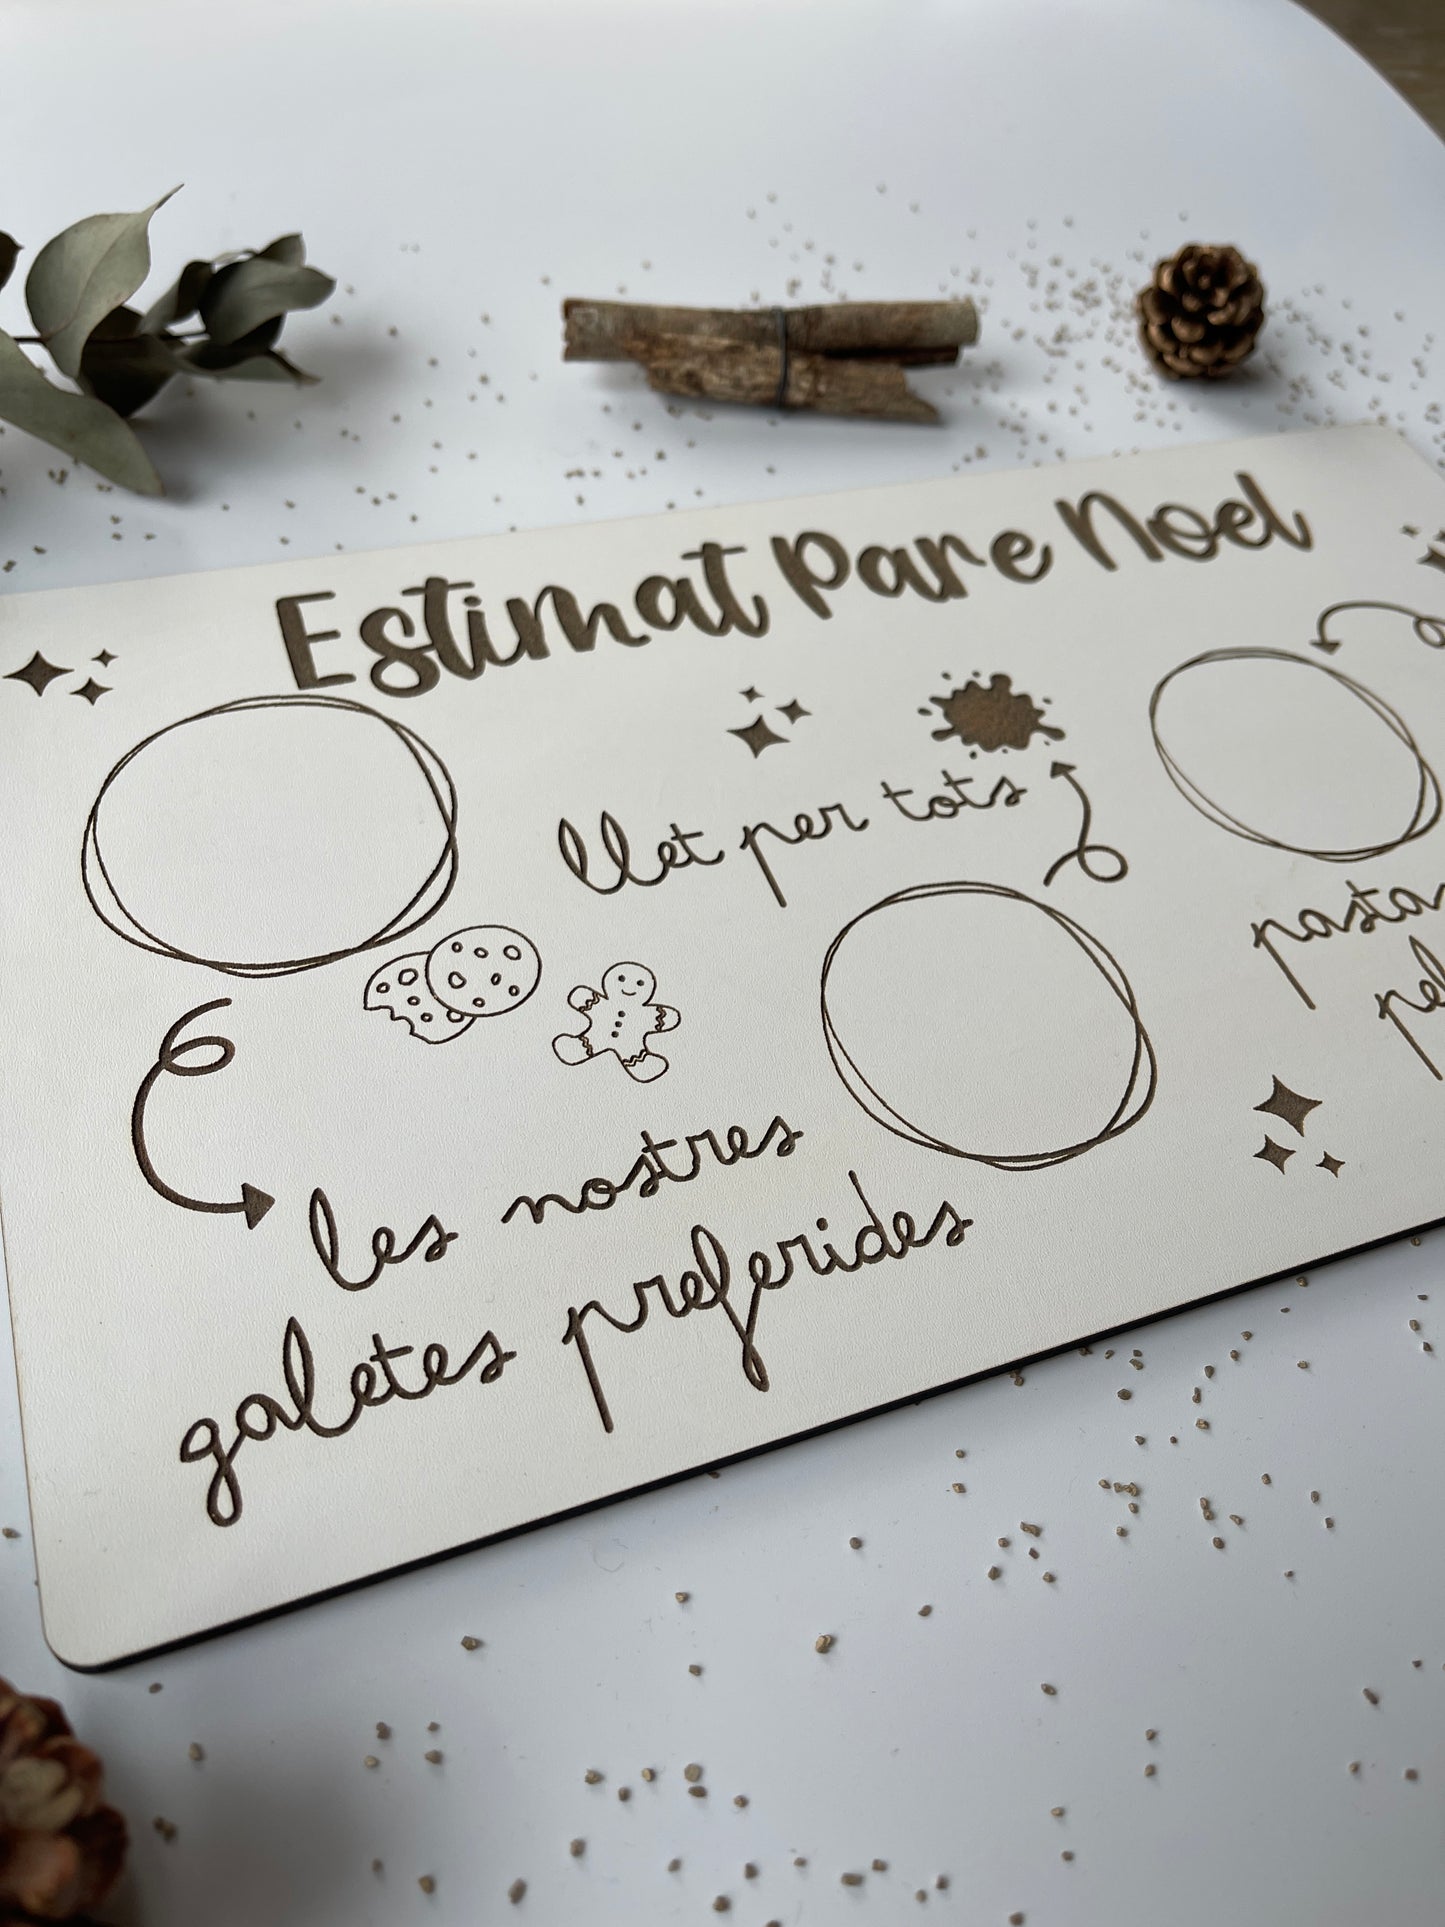 Estimat Pare Noel
llet per tots
les nostres
galetes preferides